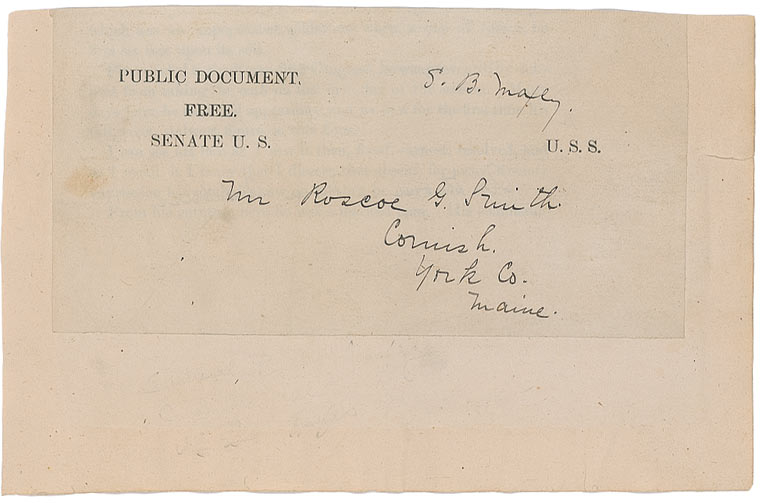 PUBLIC DOCUMENT.
FREE.
SENATE U. S.
S. B. Maxey.
U. S. S.
Mr Roscoe G. Smith
Cornish.
York Co.
Maine.